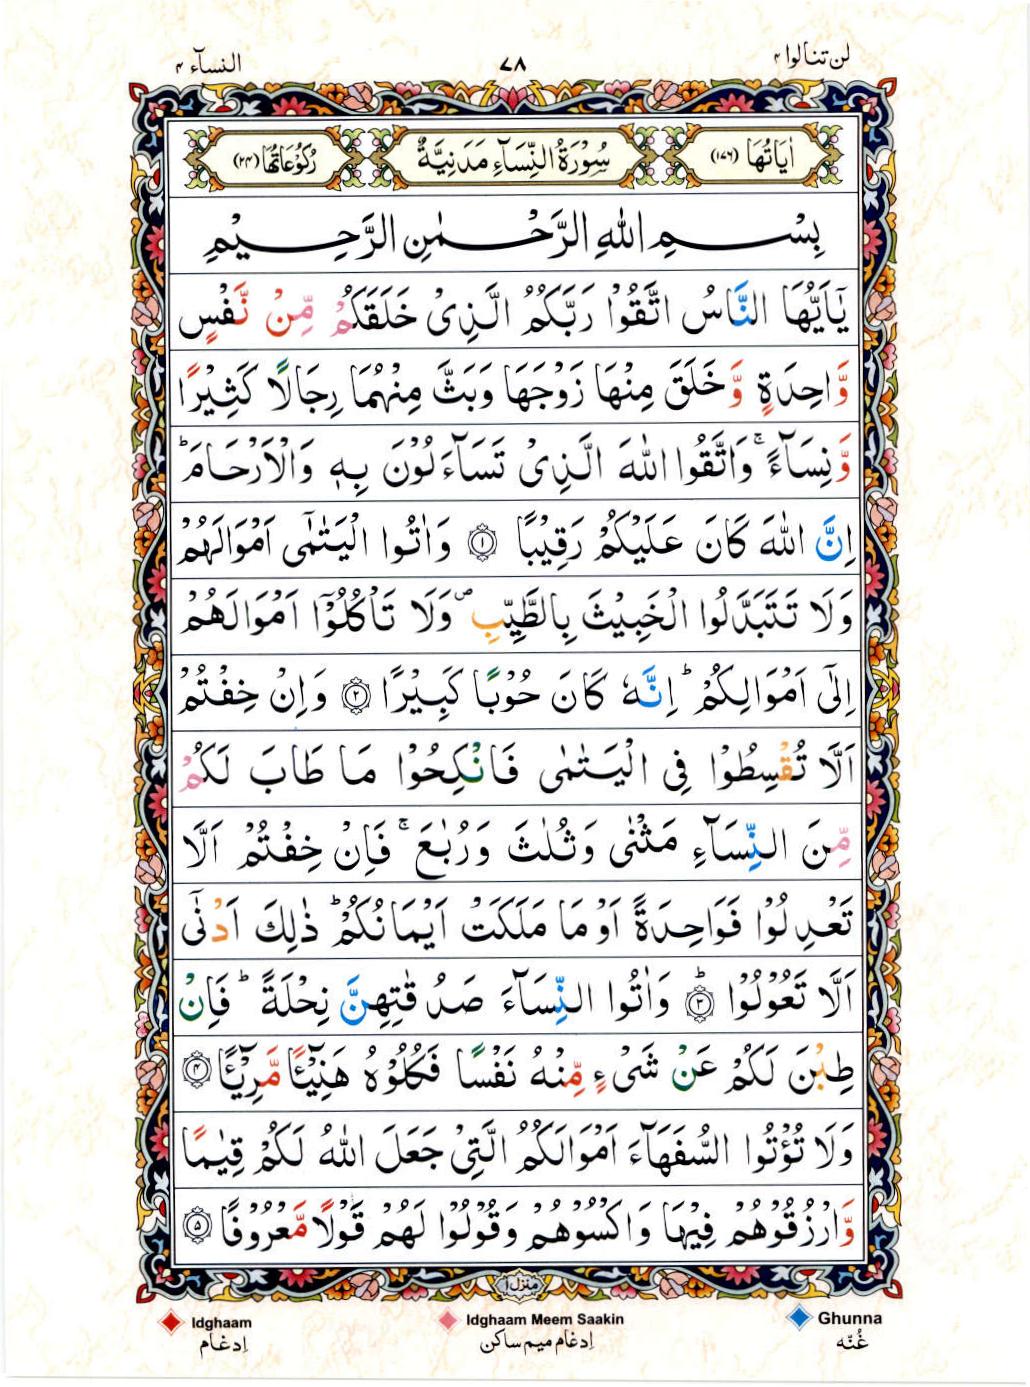 لن تنالوا ۴
۷۸
النسآء ۴
اٰيَاتُهَا (۱۷۶)
سُوْرَةُ النِّسَآءِ مَدَنِيَّةٌ
رُكُوْعَاتُهَا (۲۴)
بِسْمِ اللّٰهِ الرَّحْمٰنِ الرَّحِيْمِ
يٰۤاَيُّهَا النَّاسُ اتَّقُوْا رَبَّكُمُ الَّذِىْ خَلَقَكُمْ مِّنْ نَّفْسٍ
وَّاحِدَةٍ وَّخَلَقَ مِنْهَا زَوْجَهَا وَبَثَّ مِنْهُمَا رِجَالًا كَثِيْرًا
وَّنِسَآءً ۚ وَاتَّقُوا اللّٰهَ الَّذِىْ تَسَآءَلُوْنَ بِهٖ وَالْاَرْحَامَ ؕ
اِنَّ اللّٰهَ كَانَ عَلَيْكُمْ رَقِيْبًا ۝۱ وَاٰتُوا الْيَتٰمٰۤى اَمْوَالَهُمْ
وَلَا تَتَبَدَّلُوا الْخَبِيْثَ بِالطَّيِّبِ ۪ وَلَا تَاْكُلُوْۤا اَمْوَالَهُمْ
اِلٰٓى اَمْوَالِكُمْ ؕ اِنَّهٗ كَانَ حُوْبًا كَبِيْرًا ۝۲ وَاِنْ خِفْتُمْ
اَلَّا تُقْسِطُوْا فِى الْيَتٰمٰى فَانْكِحُوْا مَا طَابَ لَكُمْ
مِّنَ النِّسَآءِ مَثْنٰى وَثُلٰثَ وَرُبٰعَ ۚ فَاِنْ خِفْتُمْ اَلَّا
تَعْدِلُوْا فَوَاحِدَةً اَوْ مَا مَلَكَتْ اَيْمَانُكُمْ ؕ ذٰلِكَ اَدْنٰٓى
اَلَّا تَعُوْلُوْا ؕ ۝۳ وَاٰتُوا النِّسَآءَ صَدُقٰتِهِنَّ نِحْلَةً ؕ فَاِنْ
طِبْنَ لَكُمْ عَنْ شَىْءٍ مِّنْهُ نَفْسًا فَكُلُوْهُ هَنِيْٓــًٔا مَّرِيْٓــًٔا ۝۴
وَلَا تُؤْتُوا السُّفَهَآءَ اَمْوَالَكُمُ الَّتِىْ جَعَلَ اللّٰهُ لَكُمْ قِيٰمًا
وَّارْزُقُوْهُمْ فِيْهَا وَاكْسُوْهُمْ وَقُوْلُوْا لَهُمْ قَوْلًا مَّعْرُوْفًا ۝۵
منزل ۱
Idghaam
Idghaam Meem Saakin
Ghunna
اِدغام
اِدغام میم ساکن
غُنّه